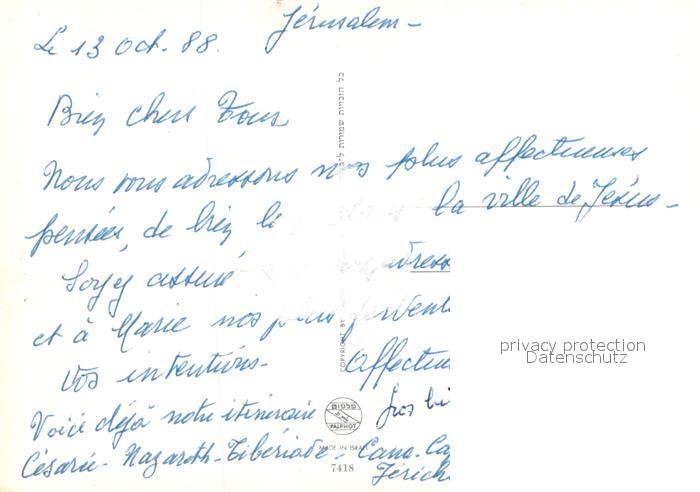 Jérusalem -
Le 13 Oct. 88.
Bien chers Tous
Nous vous adressons nos plus affectueuses
pensées, de bien la ville de Jésus -
Soyez assuré adress
et à Marie nos plus ferven
Vos intentions - Affectue
Voici déjà notre itinéraire Gros bi
Césarée - Nazareth - Tibériade - Cana - Ca
Jérich
כל הזכויות שמורות
COPYRIGHT BY
פלפוט
PALPHOT
MADE IN ISRAEL
7418
privacy protection
Datenschutz